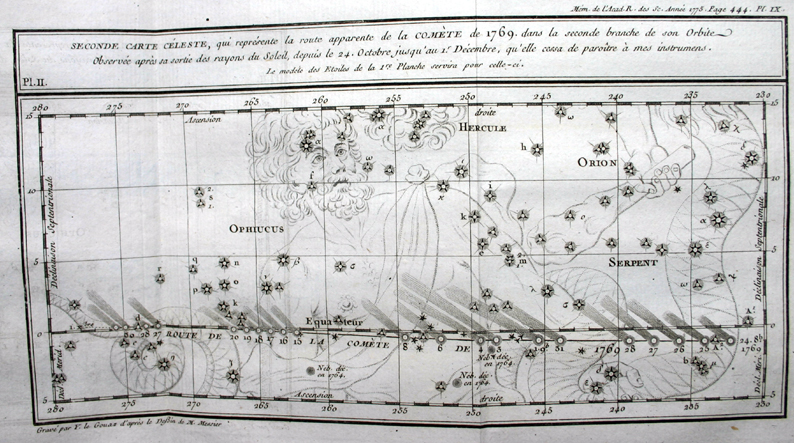 Mém. de l'Acad. R. des Sc. Année 1775. Page 444. Pl. IX.
SECONDE CARTE CÉLESTE, qui représente la route apparente de la COMÈTE de 1769. dans la seconde branche de son Orbite
Observée après sa sortie des rayons du Soleil, depuis le 24. Octobre jusqu'au 1.r Décembre, qu'elle cessa de paroître à mes instrumens.
Le modèle des Etoiles de la 1.re Planche servira pour celle-ci.
Pl. II.
280 275 270 265 260 255 250 245 240 235 230
Ascension droite
15 15
HERCULE
ORION
10 10
Declinaison Septentrionale
Declinaison Septentrionale
OPHIUCUS
SERPENT
5 5
Equateur
0 0
ROUTE DE LA COMÈTE DE 1769
28 27 20 19 18 17 16 15 8 6 31 28 27 26 24
1769
Neb. déc. en 1764.
Neb. déc. en 1764.
Neb. déc. en 1764.
Décl. Merid.
Décl. Mer.
5 5
Ascension droite
280 275 270 265 260 255 250 245 240 235 230
Gravé par Y. le Gouaz d'après le Dessin de M. Messier